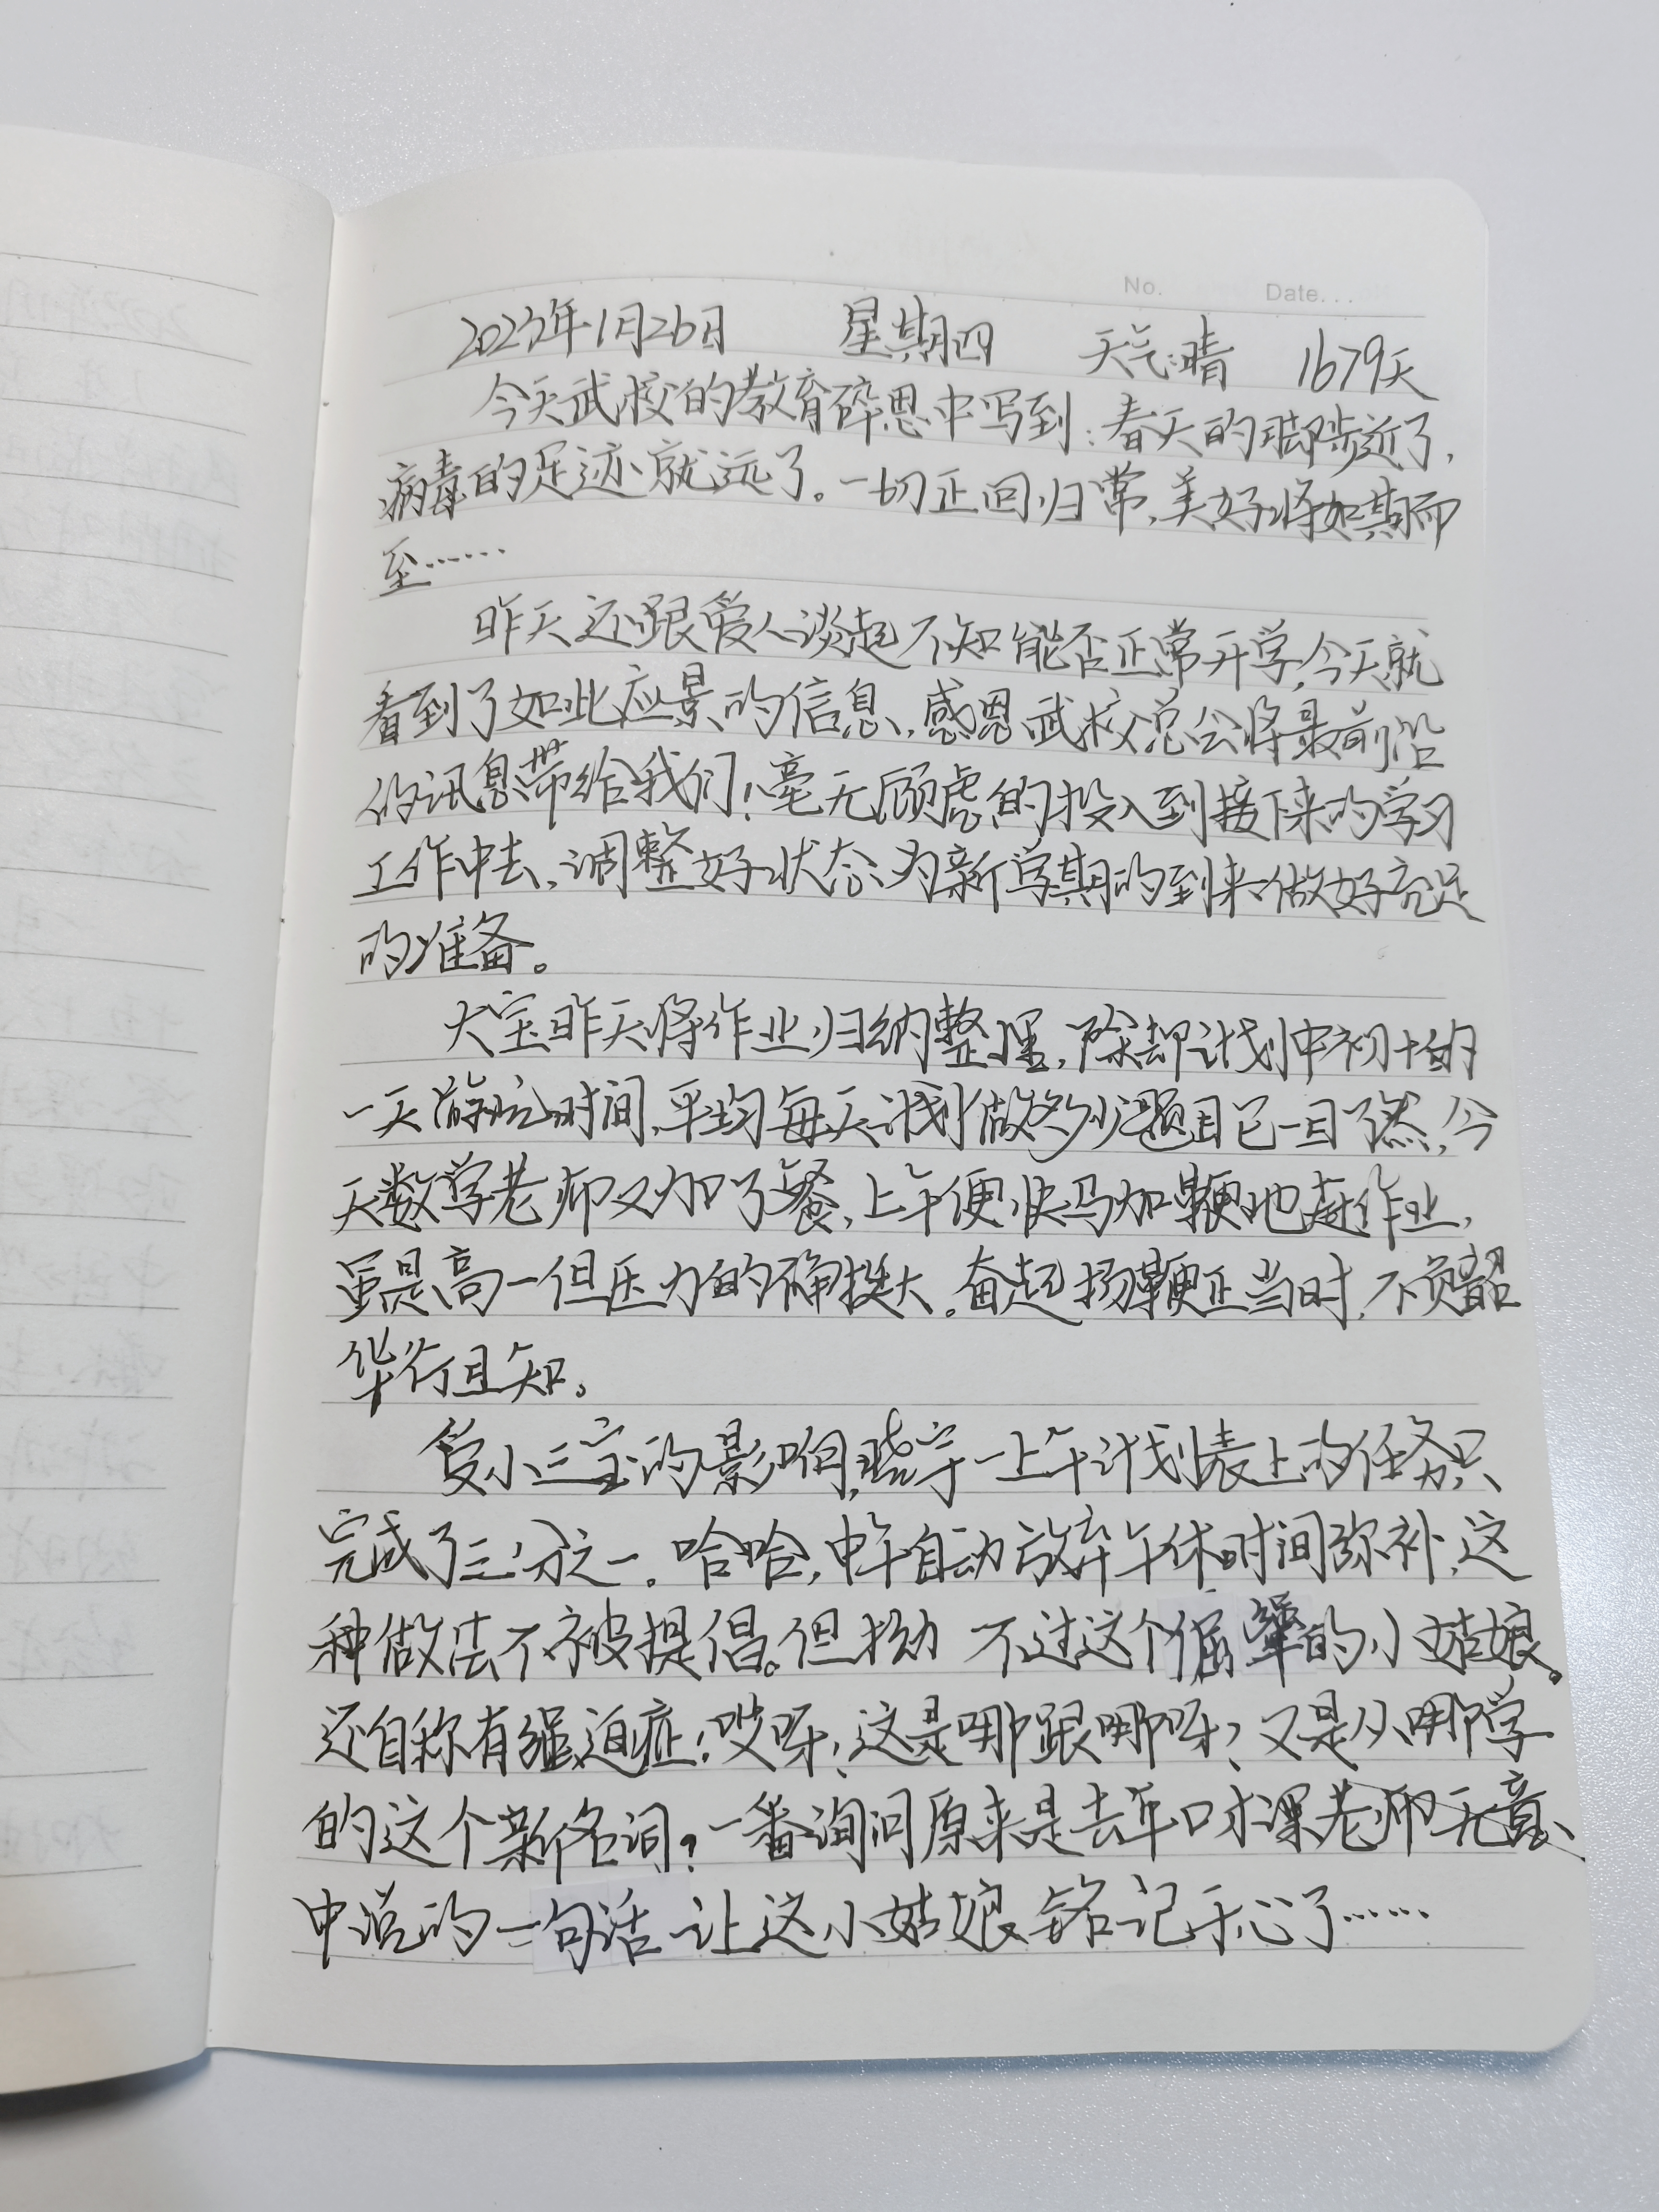 No. Date...
2023年1月26日 星期四 天气:晴 1679天
今天武校的教育碎思中写到:春天的脚步近了,
病毒的足迹就远了。一切正回归常,美好将如期而
至……
昨天还跟爱人谈起不知能否正常开学,今天就
看到了如此应景的信息,感恩武校总会将最前沿
的讯息带给我们!毫无顾虑的投入到接下来的学习
工作中去,调整好状态为新学期的到来做好充足
的准备。
大宝昨天将作业归纳整理,除却计划中初十的
一天游玩时间,平均每天计划做多少题目已一目了然,今
天数学老师又加了餐,上午便快马加鞭地赶作业,
虽是高一但压力的确挺大。奋起扬鞭正当时,不负韶
华行且知。
受小三宝的影响,晓宇一上午计划表上的任务只
完成了三分之一。哈哈,中午自动放弃午休时间弥补,这
种做法不被提倡。但拗 不过这个倔犟的小姑娘。
还自称有强迫症!哎呀!这是哪跟哪呀?又是从哪学
的这个新名词?一番询问原来是去年口才课老师无意
中说的一句话 让这小姑娘铭记于心了……